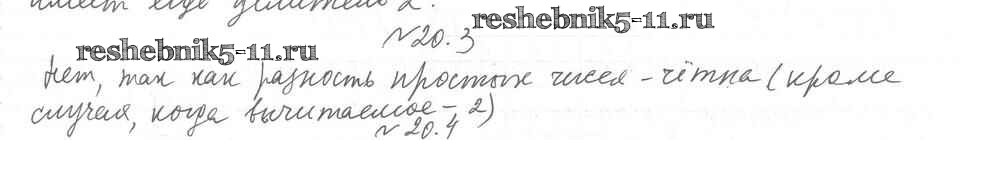 имеет ещё делитель 2.
reshebnik5-11.ru
№20.3
reshebnik5-11.ru
Нет, так как разность простых чисел - чётна (кроме
случая, когда вычитаемое - 2)
№20.4